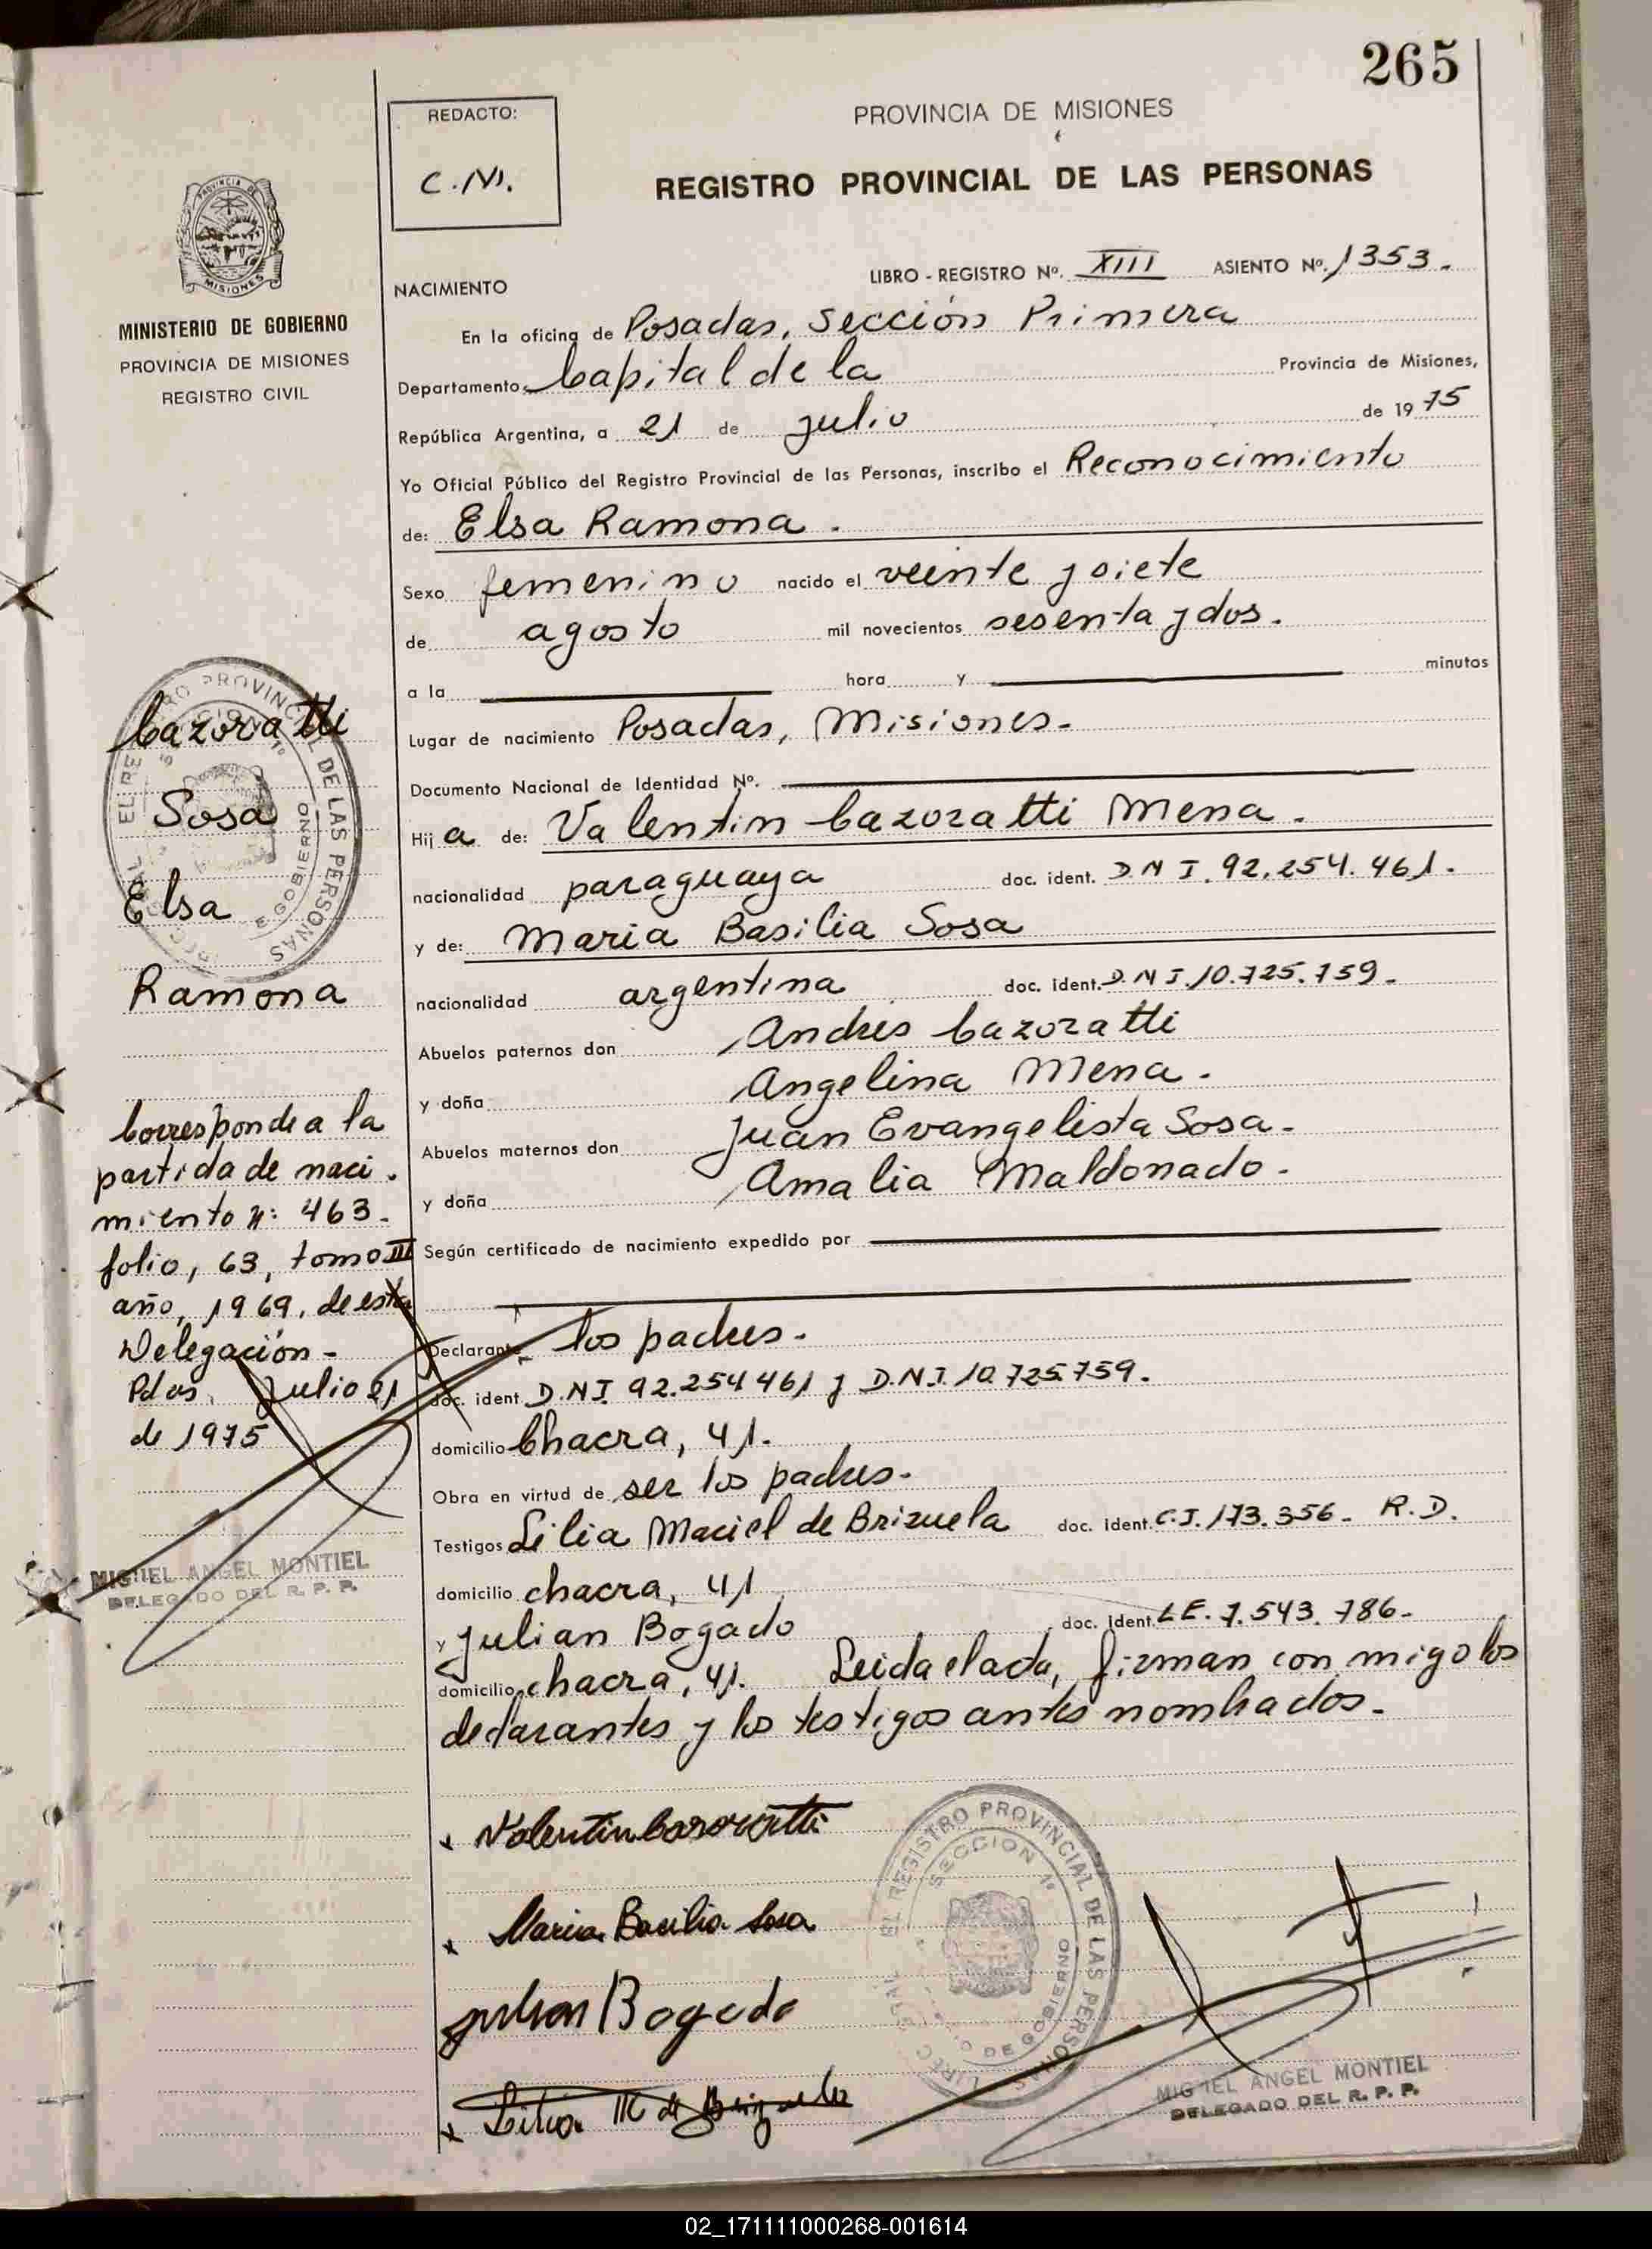 265
REDACTO:
C.N.
PROVINCIA DE MISIONES
REGISTRO PROVINCIAL DE LAS PERSONAS
MISIONES
MINISTERIO DE GOBIERNO
PROVINCIA DE MISIONES
REGISTRO CIVIL
NACIMIENTO
LIBRO - REGISTRO Nº. XIII ASIENTO Nº. 1353.
En la oficina de Posadas, Sección Primera
Departamento Capital de la Provincia de Misiones,
República Argentina, a 21 de julio de 1975
Yo Oficial Público del Registro Provincial de las Personas, inscribo el Reconocimiento
de: Elsa Ramona.
Sexo femenino nacido el veinte y siete
de agosto mil novecientos sesenta y dos.
a la hora y minutos
Lugar de nacimiento Posadas, Misiones.
Documento Nacional de Identidad Nº.
Hija de: Valentin Cazoratti Mena.
nacionalidad paraguaya doc. ident. D N I. 92.254.461.
y de: Maria Basilia Sosa
nacionalidad argentina doc. ident. D.N I. 10.725.759.
Abuelos paternos don Andrés Cazoratti
y doña Angelina Mena.
Abuelos maternos don Juan Evangelista Sosa.
y doña Amalia Maldonado.
Según certificado de nacimiento expedido por
Declarante los padres.
doc. ident. D.N I. 92.254 461 y D.N.I. 10.725.759.
domicilio Chacra, 41.
Obra en virtud de ser los padres.
Testigos Lilia Maciel de Brizuela doc. ident. C.I. 173.356. R.D.
domicilio chacra, 41
y Julian Bogado doc. ident. L E. 7.543.786.
domicilio chacra, 41. Leida el acta, firman con migo los
declarantes y los testigos antes nombrados.
Cazoratti
Sosa
Elsa
Ramona
Corresponde a la
partida de naci.
miento nº: 463.
folio, 63, tomo III
año, 1969, de esta
Delegación -
Pdas. Julio 21
de 1975
MIGUEL ANGEL MONTIEL
DELEGADO DEL R. P. P.
x Valentin Cazoratti
x Maria Basilia Sosa
Julian Bogado
x Lilia M de Brizuela
EL REGISTRO PROVINCIAL DE LAS PERSONAS
SECCION 1º
DE GOBIERNO
MIGUEL ANGEL MONTIEL
DELEGADO DEL R. P. P.
02_171111000268-001614